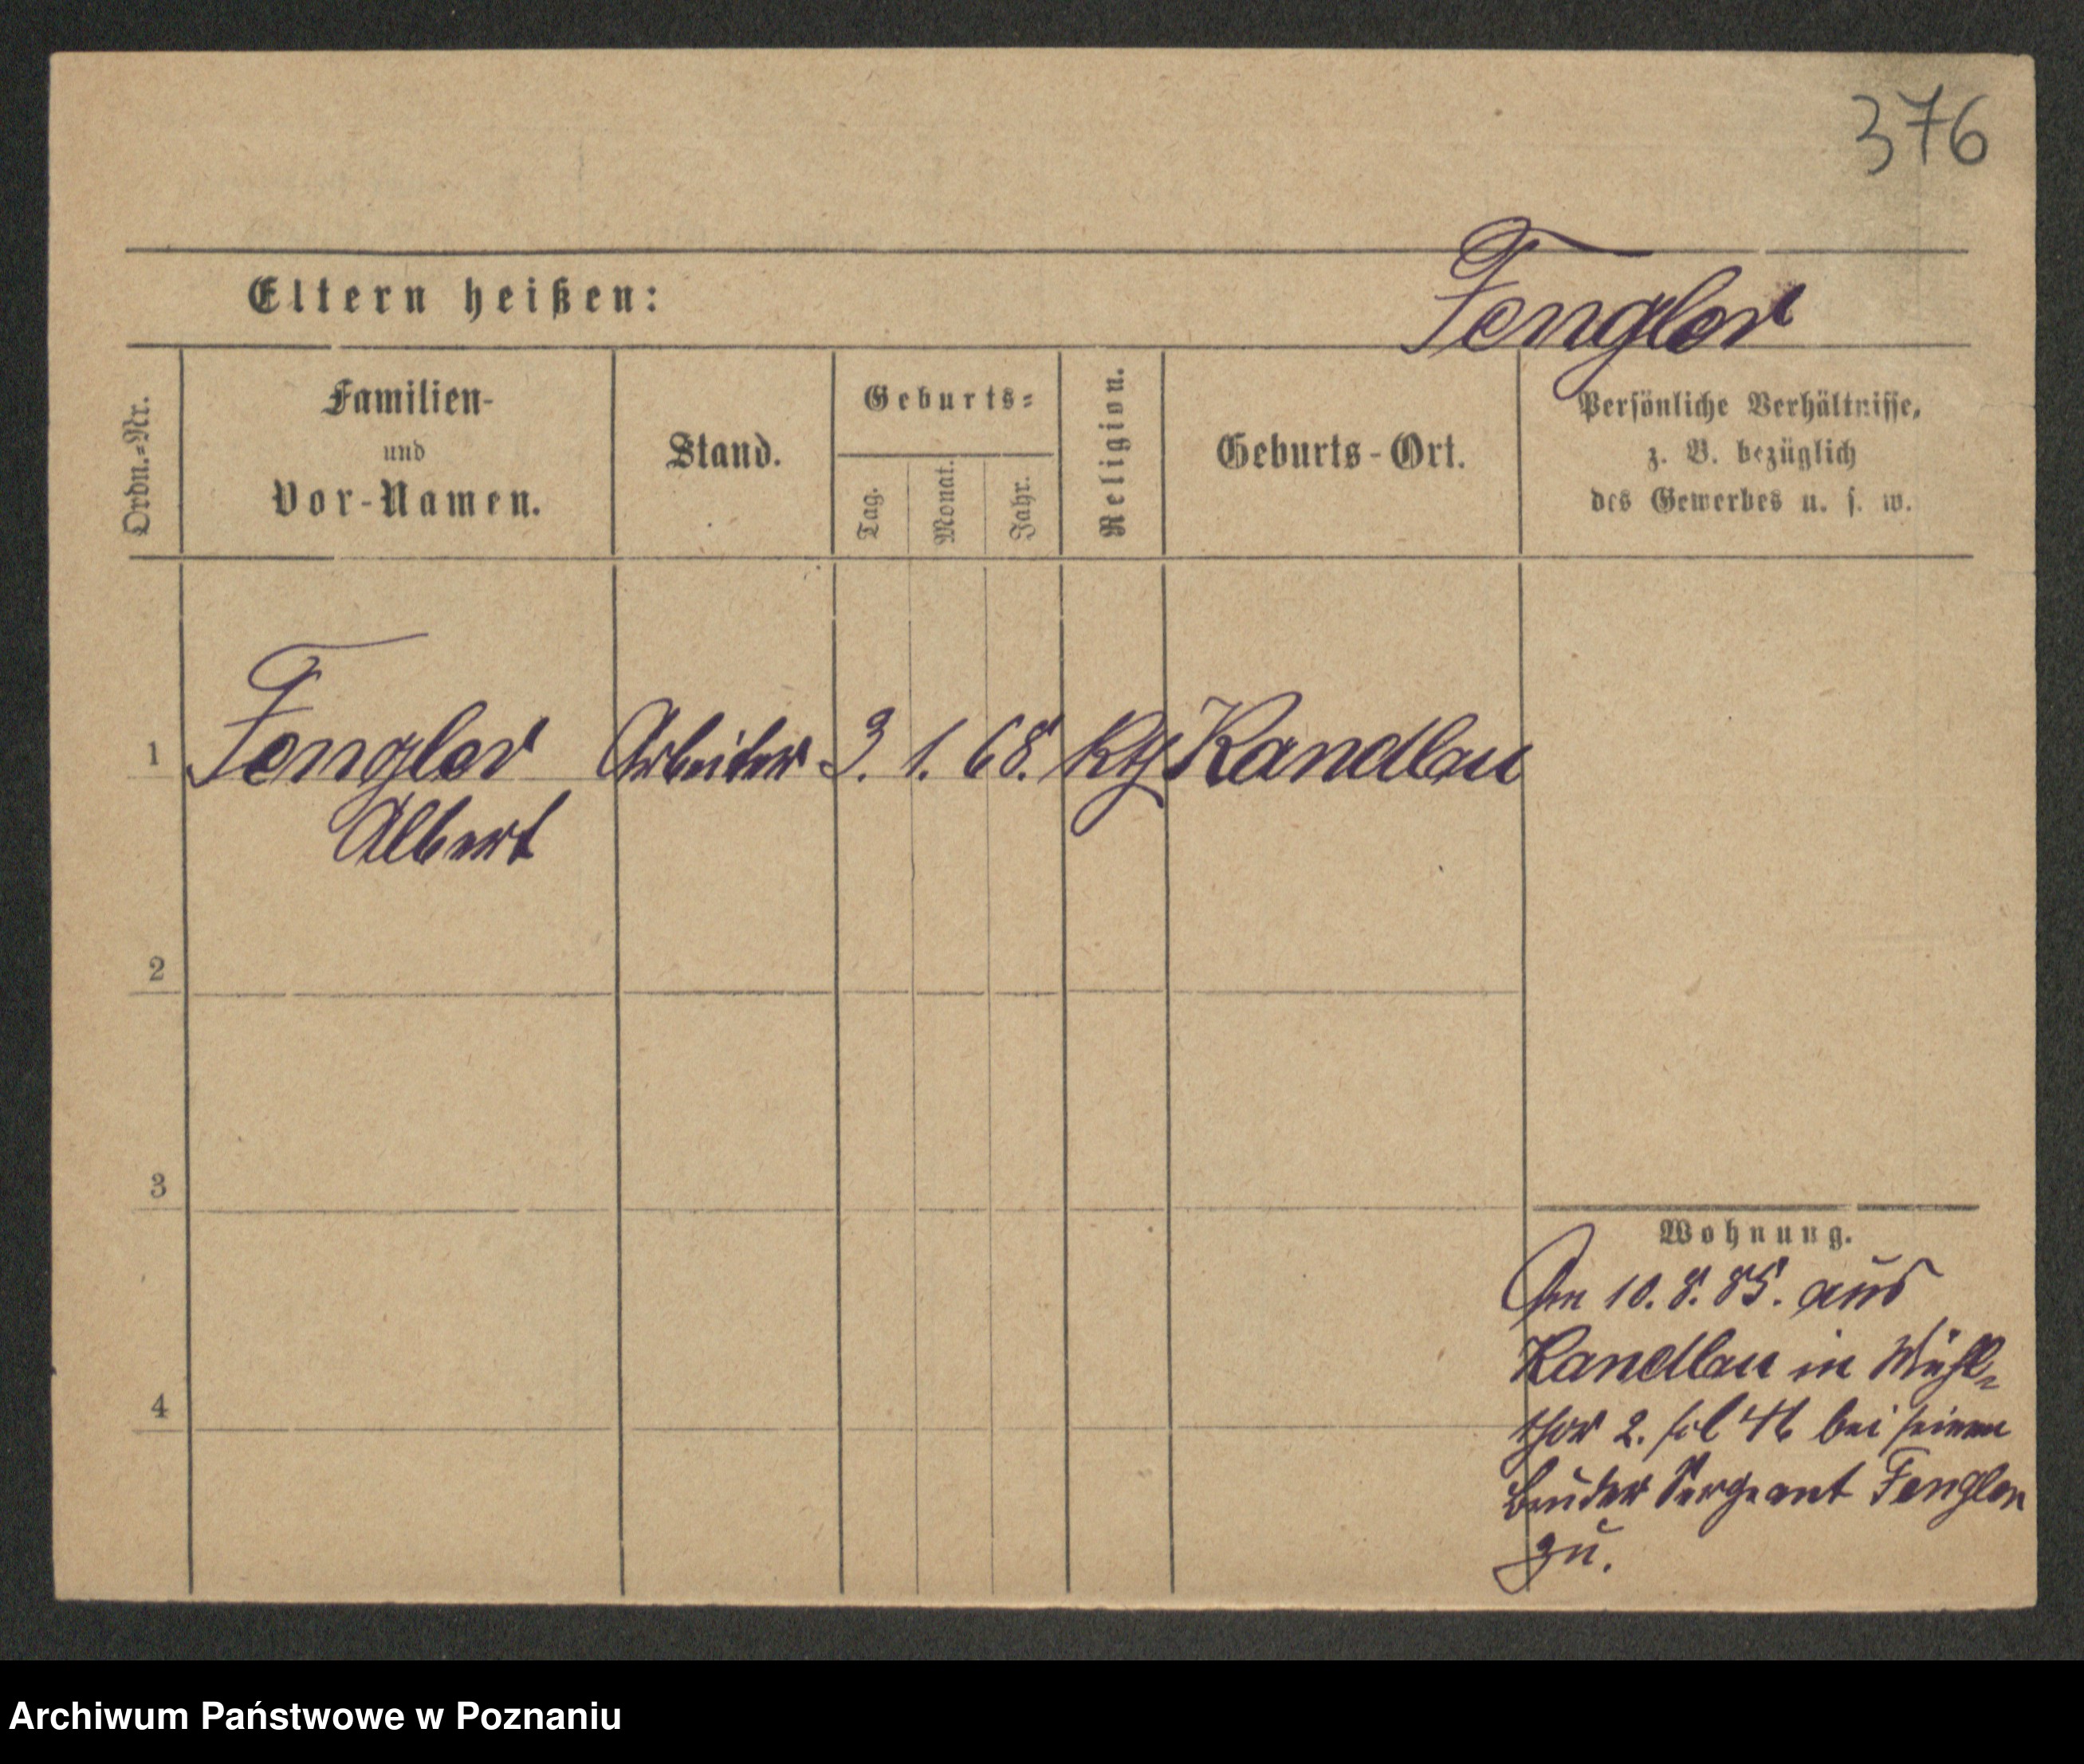 376
Eltern heißen:
Fengler
Ordn.=Nr.
Familien-
und
Vor-Namen.
Stand.
Geburts=
Tag.
Monat.
Jahr.
Religion.
Geburts-Ort.
Persönliche Verhältnisse,
z. B. bezüglich
des Gewerbes u. s. w.
1 Fengler Arbeiter 3. 1. 68. kth Kandlau
Albert
2
3
4
Wohnung.
Am 10. 8. 85. aus
Kandlau in Mühl=
thor 2. bei seinem
Bruder Sergeant Fengler
zu.
Archiwum Państwowe w Poznaniu